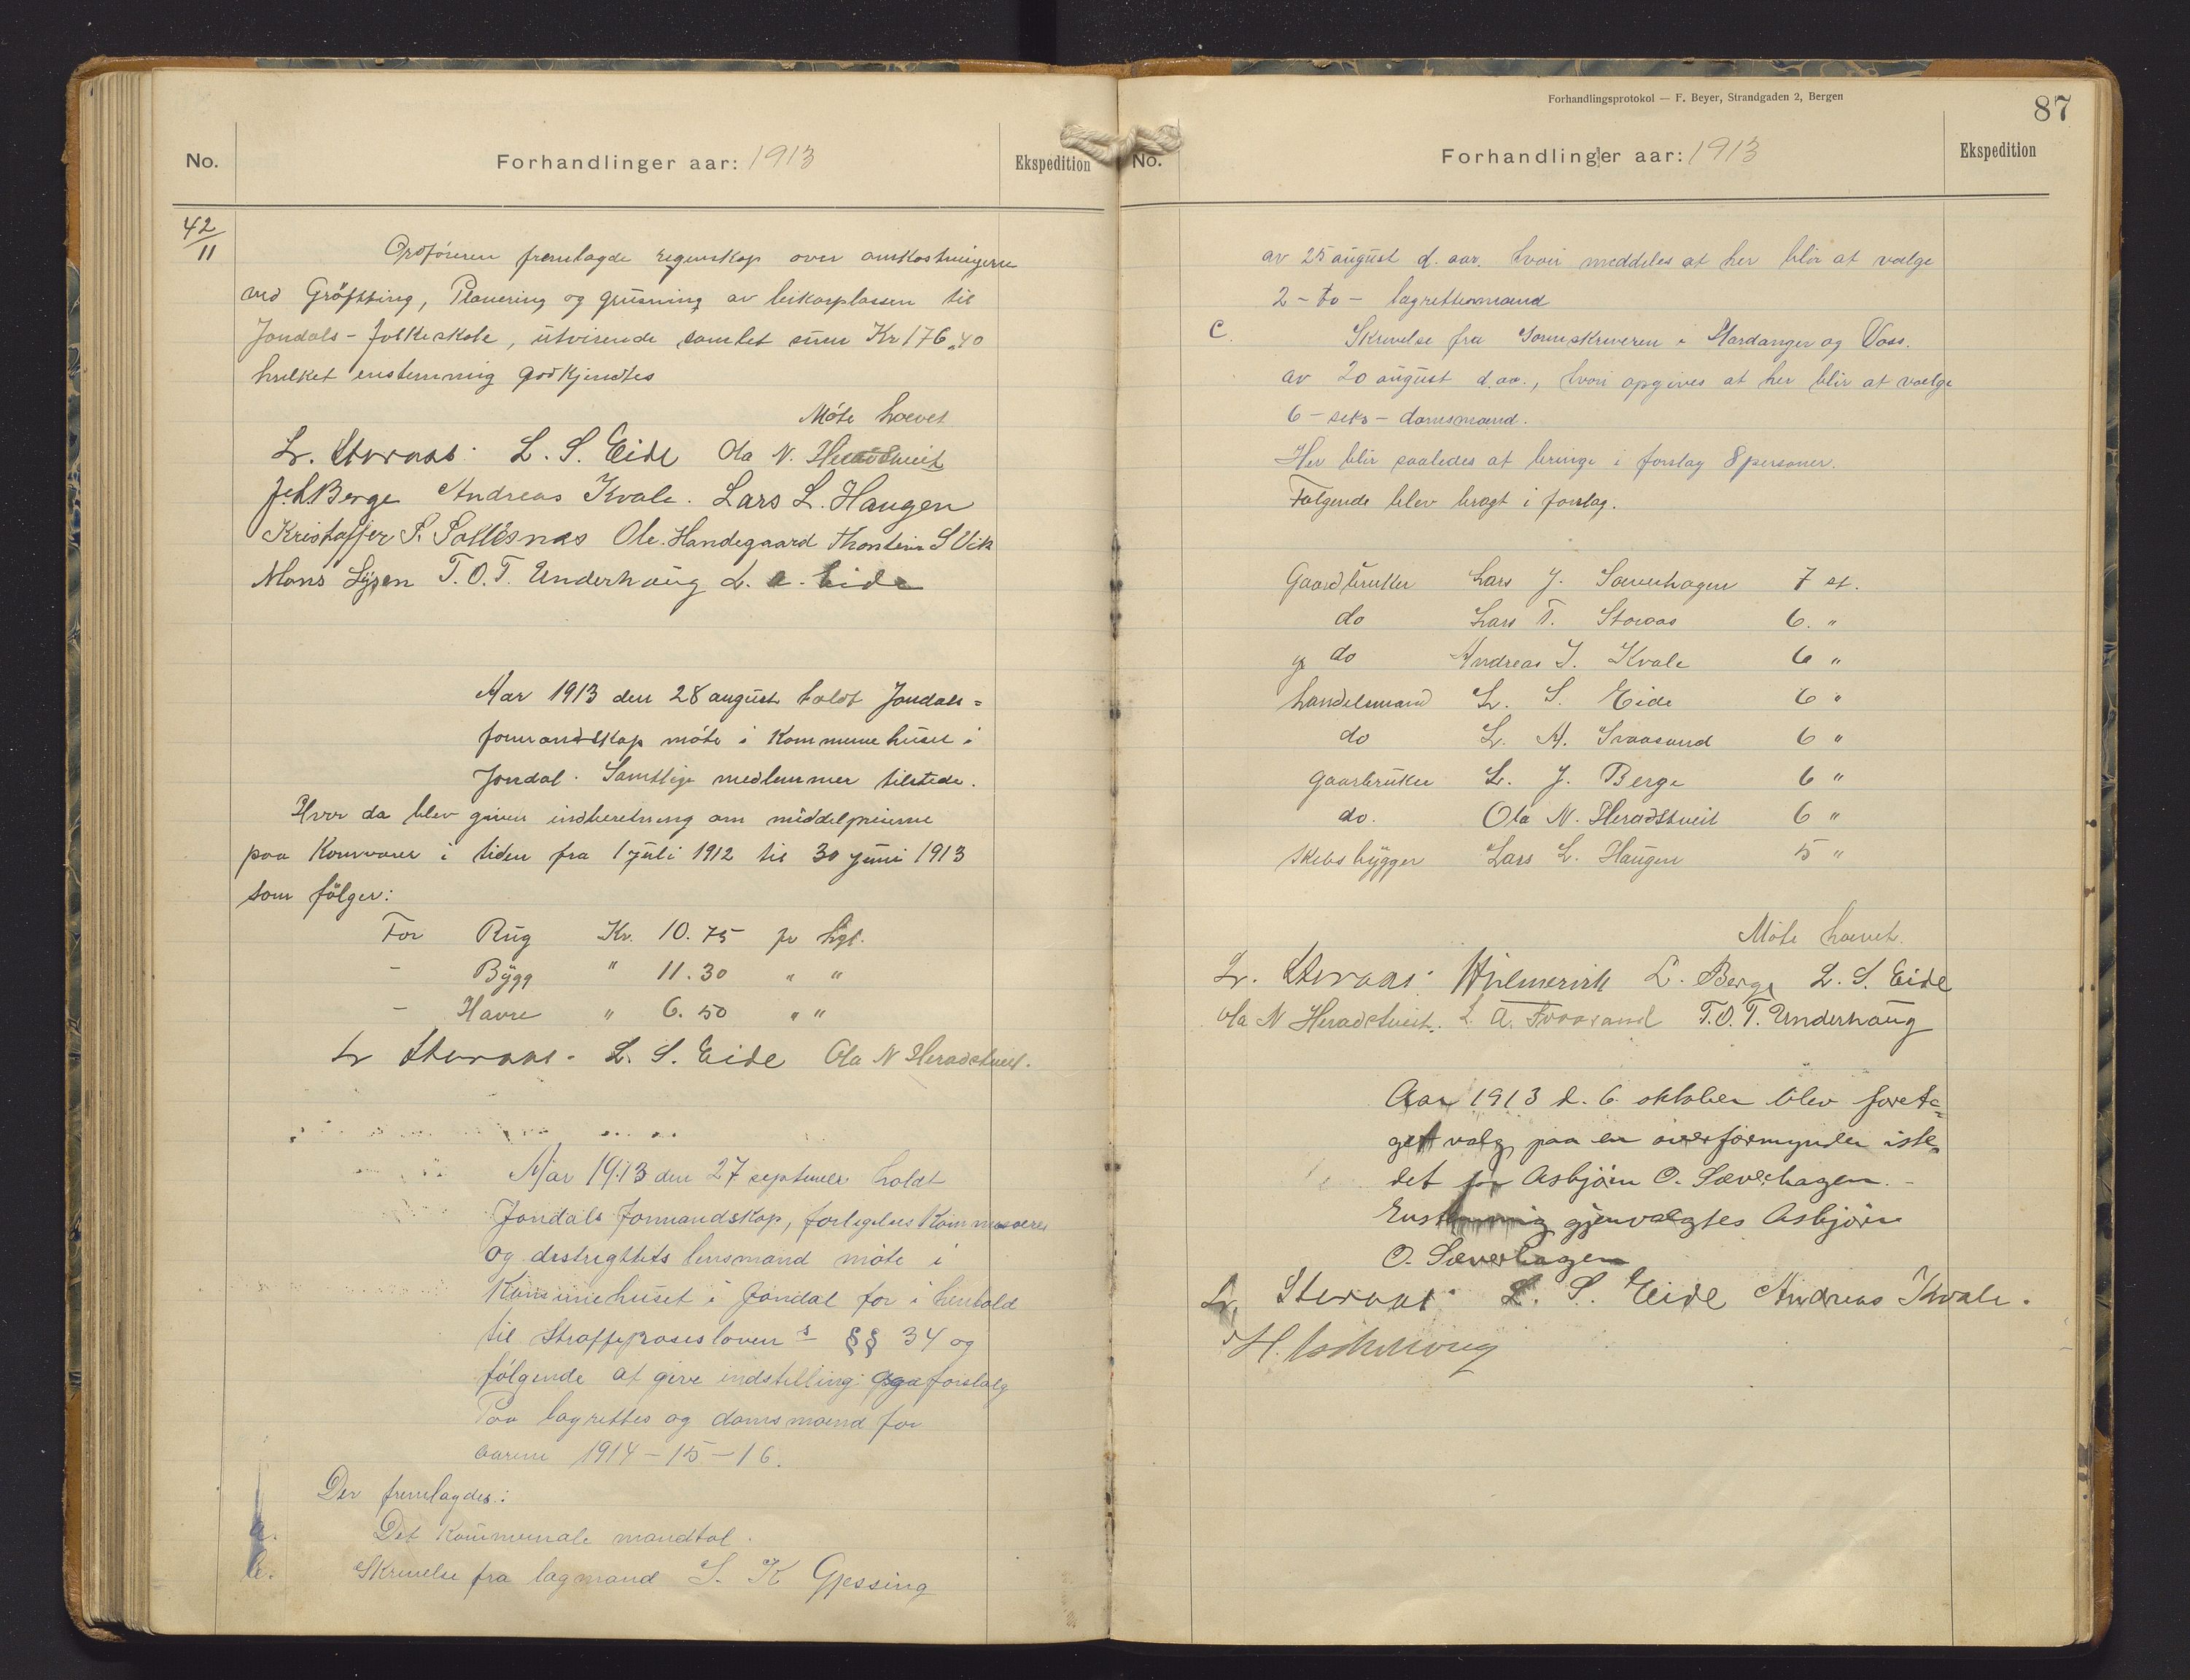 No.
Forhandlinger aar: 1913
Ekspedition
42/11
Ordföreren fremlagde regnskap over omkostningerne
ved Gröfting, Planering og grusning av leikarplassen til
Jondals-folkeskole, utvisende samlet sum Kr 176,40
hvilket enstemmig godkjendtes
Möte hævet
Lr. Storaas. L. S. Eide Ola N. Heradstveit
J. L. Berge Andreas Kvale. Lars L. Haugen
Kristaffer S. Sollesnes Ole. Handegaard Thorstein S Vik
Mons Lysen T. O. T. Underhaug L. A. Eide
Aar 1913 den 28 august holdt Jondals=
formandskap möte i Kommunehuset i
Jondal. Samtlige medlemmer tilstede.
Hvor da blev given indberetning om middelpriserne
paa Kornvarer i tiden fra 1 juli 1912 til 30 juni 1913
som fölger:
For Rug Kr. 10.75 pr hgl.
- Bygg " 11.30 " "
- Havre " 6.50 " "
Lr Storaas. L. S. Eide Ola N Heradstveit.
Aar 1913 den 27 septemer holdt
Jondals formandskap, forligelses Kommisærer
og destrigttets lensmand möte i
Komunehuset i Jondal for i henhold
til Straffeproseslovens §§ 34 og
fölgende at give indstilling forslalg
Paa lagrettes og domsmænd for
aarene 1914-15-16.
Der fremlagdes:
a. Det Kommunale mandtal.
b. Skrivelse fra lagmand S. K Gjessing
Forhandlingsprotokol — F. Beyer, Strandgaden 2, Bergen
87
No.
Forhandlinger aar: 1913
Ekspedition
av 25 august d. aar. hvori meddeles at her blir at vælge
2 - to - lagrettemænd
C. Skrivelse fra Sorenskriveren i Hardanger og Voss.
av 20 august d.aa., hvori opgives at her blir at vælge
6 - seks - domsmænd.
Her blir saaledes at bringe i forslag 8 personer.
Følgende blev bragt i forslag.
Gaardbruker Lars J. Sæverhagen 7 st.
do Lars T. Storaas 6. "
do Andreas J. Kvale 6 "
handelsmand L. S. Eide 6 "
do L. A. Svaasand 6 "
gaarbruker L. J. Berge 6 "
do. Ola N. Heradstveit 6 "
Skibsbygger Lars L. Haugen 5 "
Möte hævet.
Lr. Storaas. L. Berge L. S. Eide
Ola N Heradstveit. L. A. Svaasand T. O. T. Underhaug
Aar 1913 d. 6 oktober blev foreta=
get valg paa en overformynder iste=
det for Asbjörn O. Sæverhagen. -
Enstemmig gjenvalgtes Asbjörn
O. Sæverhagen
Lr. Storaas. L. S. Eide Andreas Kvale.